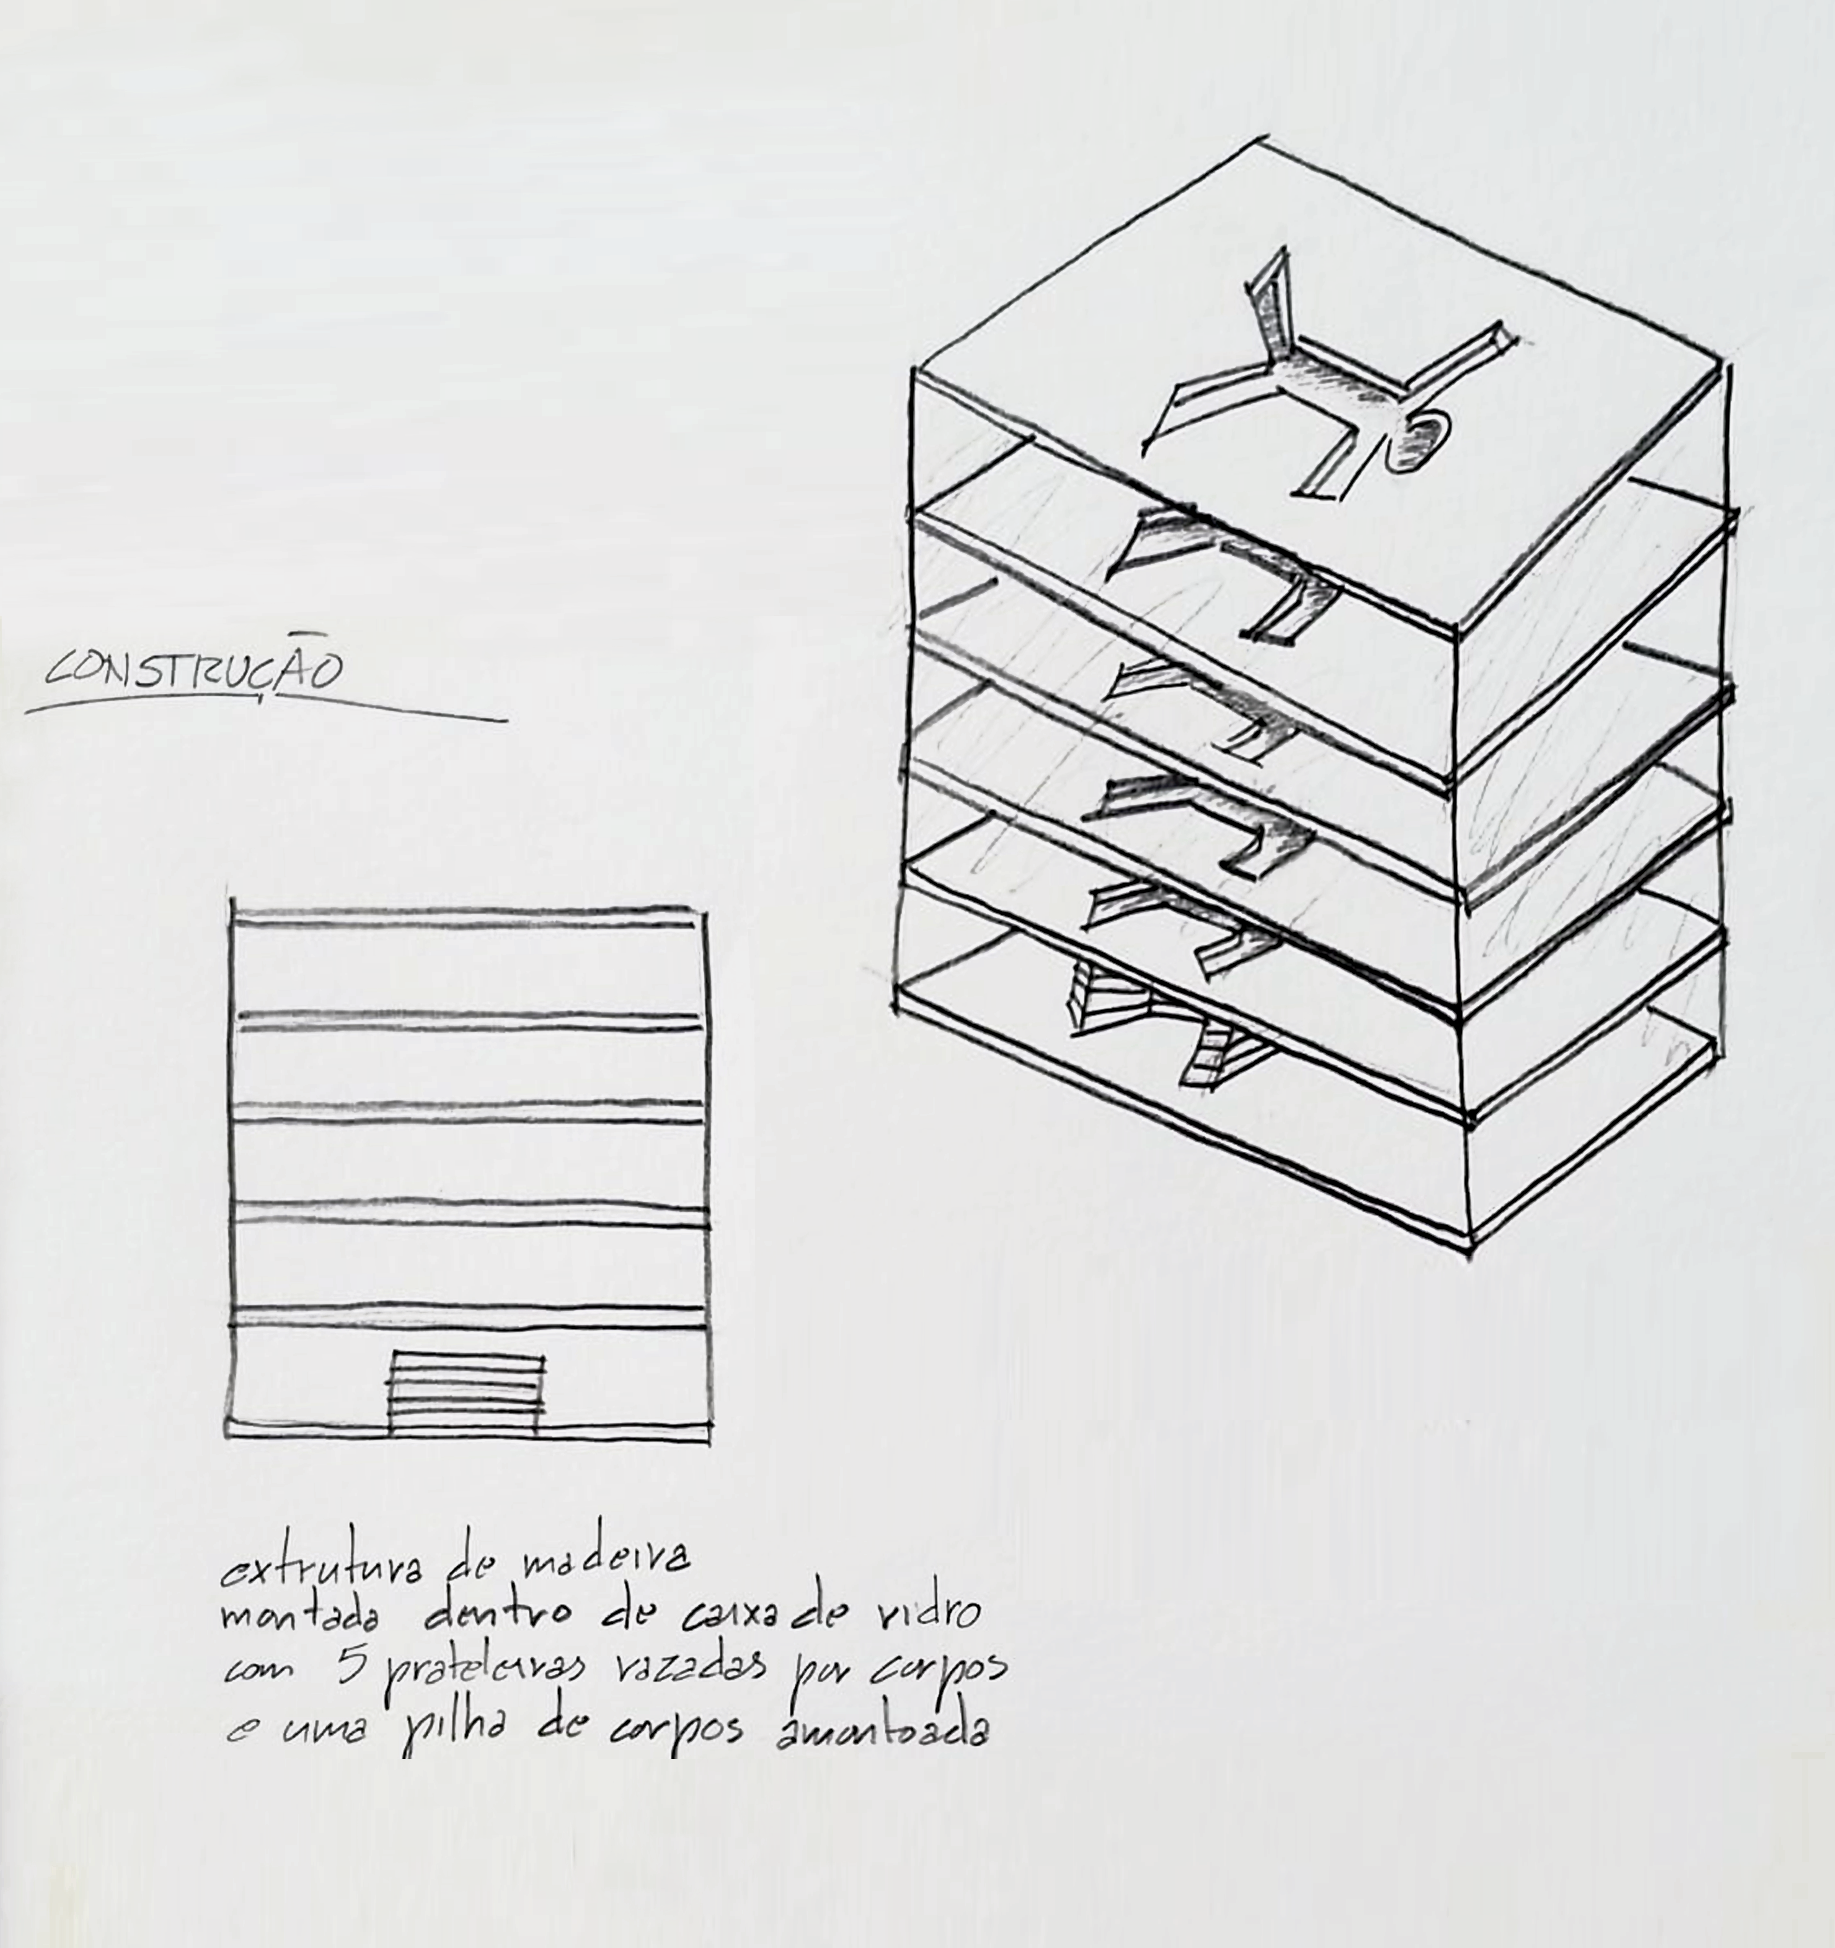 CONSTRUÇÃO
extrutura de madeira
montada dentro de caixa de vidro
com 5 prateleiras vazadas por corpos
e uma pilha de corpos amontoada